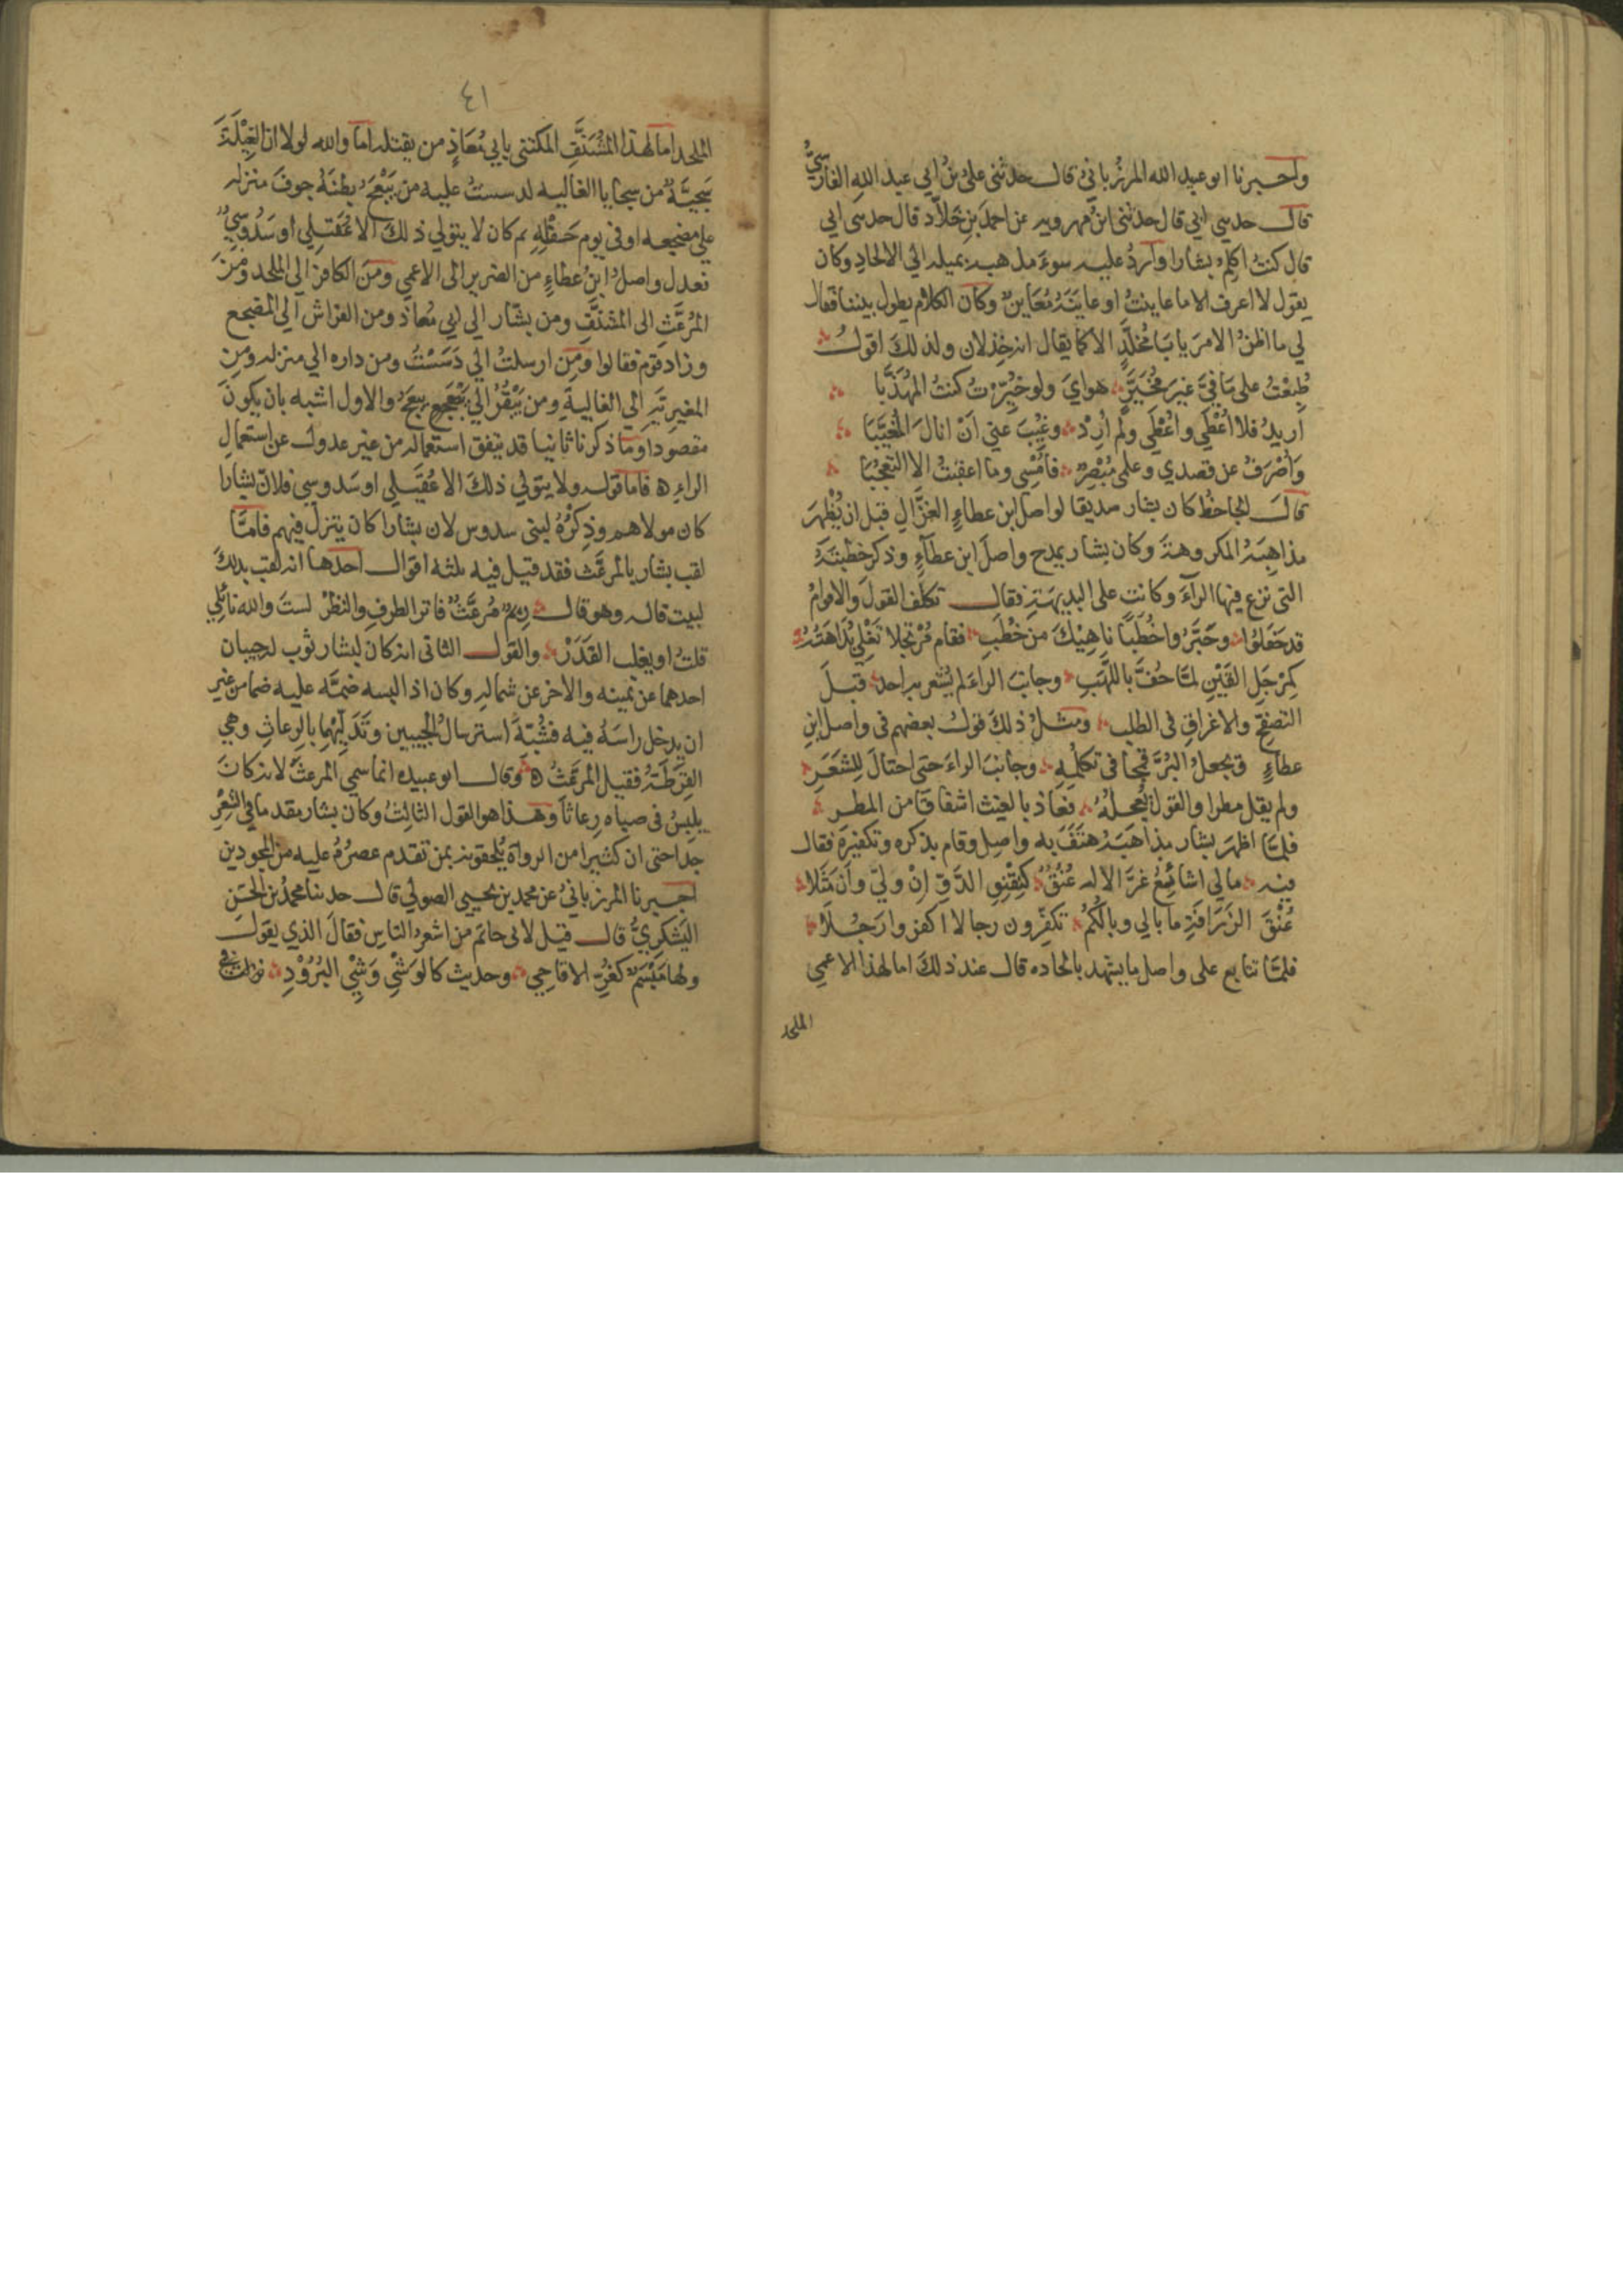 واخبرنا ابو عبيد الله المرزُباني قال حدثنى علىُّ بنُ ابى عبد اللهِ الفارسيُّ
قال حدثني ابي قال حدثنى ابنُ مهرويه عن احمدَ بنِ خلاّد قال حدثني ابي
قال كنتُ اكلِّم بشارا واَردُّ عليه سوءَ مذهبه بميله الي الالحادِ وكان
يقول لا اعرف الا ما عاينتُ او عاينَهُ مُعَاينٌ وكان الكلام يطول بيننا فقال
لي ما اظنُّ الامرَ يا با مُخلَّدٍ الا كما يقال انه خِذلان ولذلكَ اقولُ
طُبِعْتُ على مَا فِيَّ غيرَ مُخَيَّرٍ هوايَ ولو خُيِّرتُ كنتُ المهَذَّبا
اريدُ فلا اُعْطَي واُعْطَي ولَم اُرِدْ وغُيِّبَ عني اَنْ انالَ المُغيَّبَا
وَاُصْرَفُ عن قصدي وعلمي مُبْصِرٌ فاُمْسِي وما اعقبتُ الا التعجُّبا
قالَ الجاحظُ كان بشار صديقا لواصل ابن عطاءٍ الغزَّالِ قبل ان يُظْهرَ
مذاهِبَهُ المكروهةَ وكان بشار يمدح واصلَ ابن عطآءٍ وذكر خطْبتَهُ
التى نزع فيها الرآءَ وكانت على البديهَةِ فقال تكلّف القولَ والاقوامُ
قد حَفَلوُا وحَبَّرُوا خُطَبًا نَاهِيْكَ من خُطَبِ فقام مُرْتجِلا تَغْلِي بُدَاهَتُهُ
كمِرْجَلِ القَيْنِ لمّا حُفَّ باللهَبِ وجانبَ الراءَ لم يُشْعر به احد قبلَ
التصفحِ والاغراقِ فى الطلبِ ومثلُ ذلكَ قولُ بعضهم فى واصل ابن
عطاءٍ ويجعلُ البُرَّ قمْحًا فى تكلّمِهِ وجانبَ الراءَ حتى احتالَ للِشَعَرِ
ولم يقل مطرا والقول يُعجلُهُ فعَاذ بالغيث اشفاقا من المطرِ
فلمّا اظهرَ بشار مذاهبَهُ هتَفَ به واصِل وقام بذكره وتكفيرَه فقال
فيه مالي اشائِعُ غزَّالا له عُنُقٌ كنِقْنِقِ الدّوِّ اِنْ وليّ وان مَثَلا
عُنْقَ الزَرَافَةِ ما بالي وبالُكُمُ تكفّرون رجالا اكفروا رَجُلَا
فلمّا تتابع على واصل ما يشهد بالحاده قال عند ذلكَ اما لهذا الاعمي
الملحد
٤١
الملحد اما لهذا المُشَنَّفِ المكتنى بابي مُعَاذٍ من يقتله اما والله لولا ان الغِيْلَةَ
سَجيّةٌ من سجايا الغاليه لدسستُ عليه من يَبْعَجُ بطنَهُ جوفَ منزله
على مضجعه او فى يوم حَفْلِهِ ثم كان لا يتولي ذلكَ الا عُقَيلي او سَدُوسيُّ
فعدل واصلُ ابنُ عطاءٍ من الضرير الى الاعمي ومنَ الكافر الى الملحد ومنَ
المُرعَّثِ الى المشنَّفِ ومن بشّار الي ابي مُعاذ ومن الفراش الى المضجع
وزاد قوم فقالوا ومن ارسلتُ الي دَسَسْتُ ومن داره الي منزله ومن
المغيرِيّهِ الي الغاليهِ ومن يَبْقُرُ الي يَبْعَجُ والاول اشبه بان يكونَ
مقصودا وما ذكرنا ثانيا قد يتفق استعماله من غير عدول عن استعمالِ
الراءِ ه فاما قوله ولا يتولي ذلكَ الا عُقَيلي او سَدوسي فلانّ بشارا
كان مولاهم وذِكْرُهُ لبنى سدوس لان بشارا كان ينزل فيهم فامّا
لقب بشار بالمرعّث فقد قيل فيه ثلثه اقوال احدها انه لقب بذلكَ
لبيت قاله وهو قال رِيْمٌ مُرعَّثٌ فاتر الطرفِ والنظرْ لستَ والله نائِلي
قلتُ او يغلب القدَرْ والقول الثانى انه كان لبشار ثوب له جيبان
احدهما عن يمينه والاخر عن شمالِه وكان اذا لبسه ضمَّه عليه ضما من غير
ان يدخل راسَهُ فيه فشُبّهَ استرسالُ الجيبين وتَدَلِّيْهِما بالرعاثِ وهي
القِرَطَةُ فقيل المرعّثُ ه وقال ابو عبيده انما سمي المرعثَ لانه كان
يلبسُ فى صباه رِعاثاً وهذا هو القول الثالثُ وكان بشار مقدما في الشِعْرِ
جدا حتى ان كثيرا من الرواة يُلحقونه بمن تقدم عصرُهُ عليه من المجودين
اخبرنا المرزبانيُ عن محمد بن يحيى الصولي قال حدثنا محمدُ بن الحسَن
اليَشكريُّ قال قيل لابى حاتم من اشعرُ الناسِ فقالَ الذي يقولُ
ولها مَبْسَمٌ كغُرِّ الاقاحِي وحديث كالوَشْيِ وَشْيِ البُرُوْدِ نزلت في